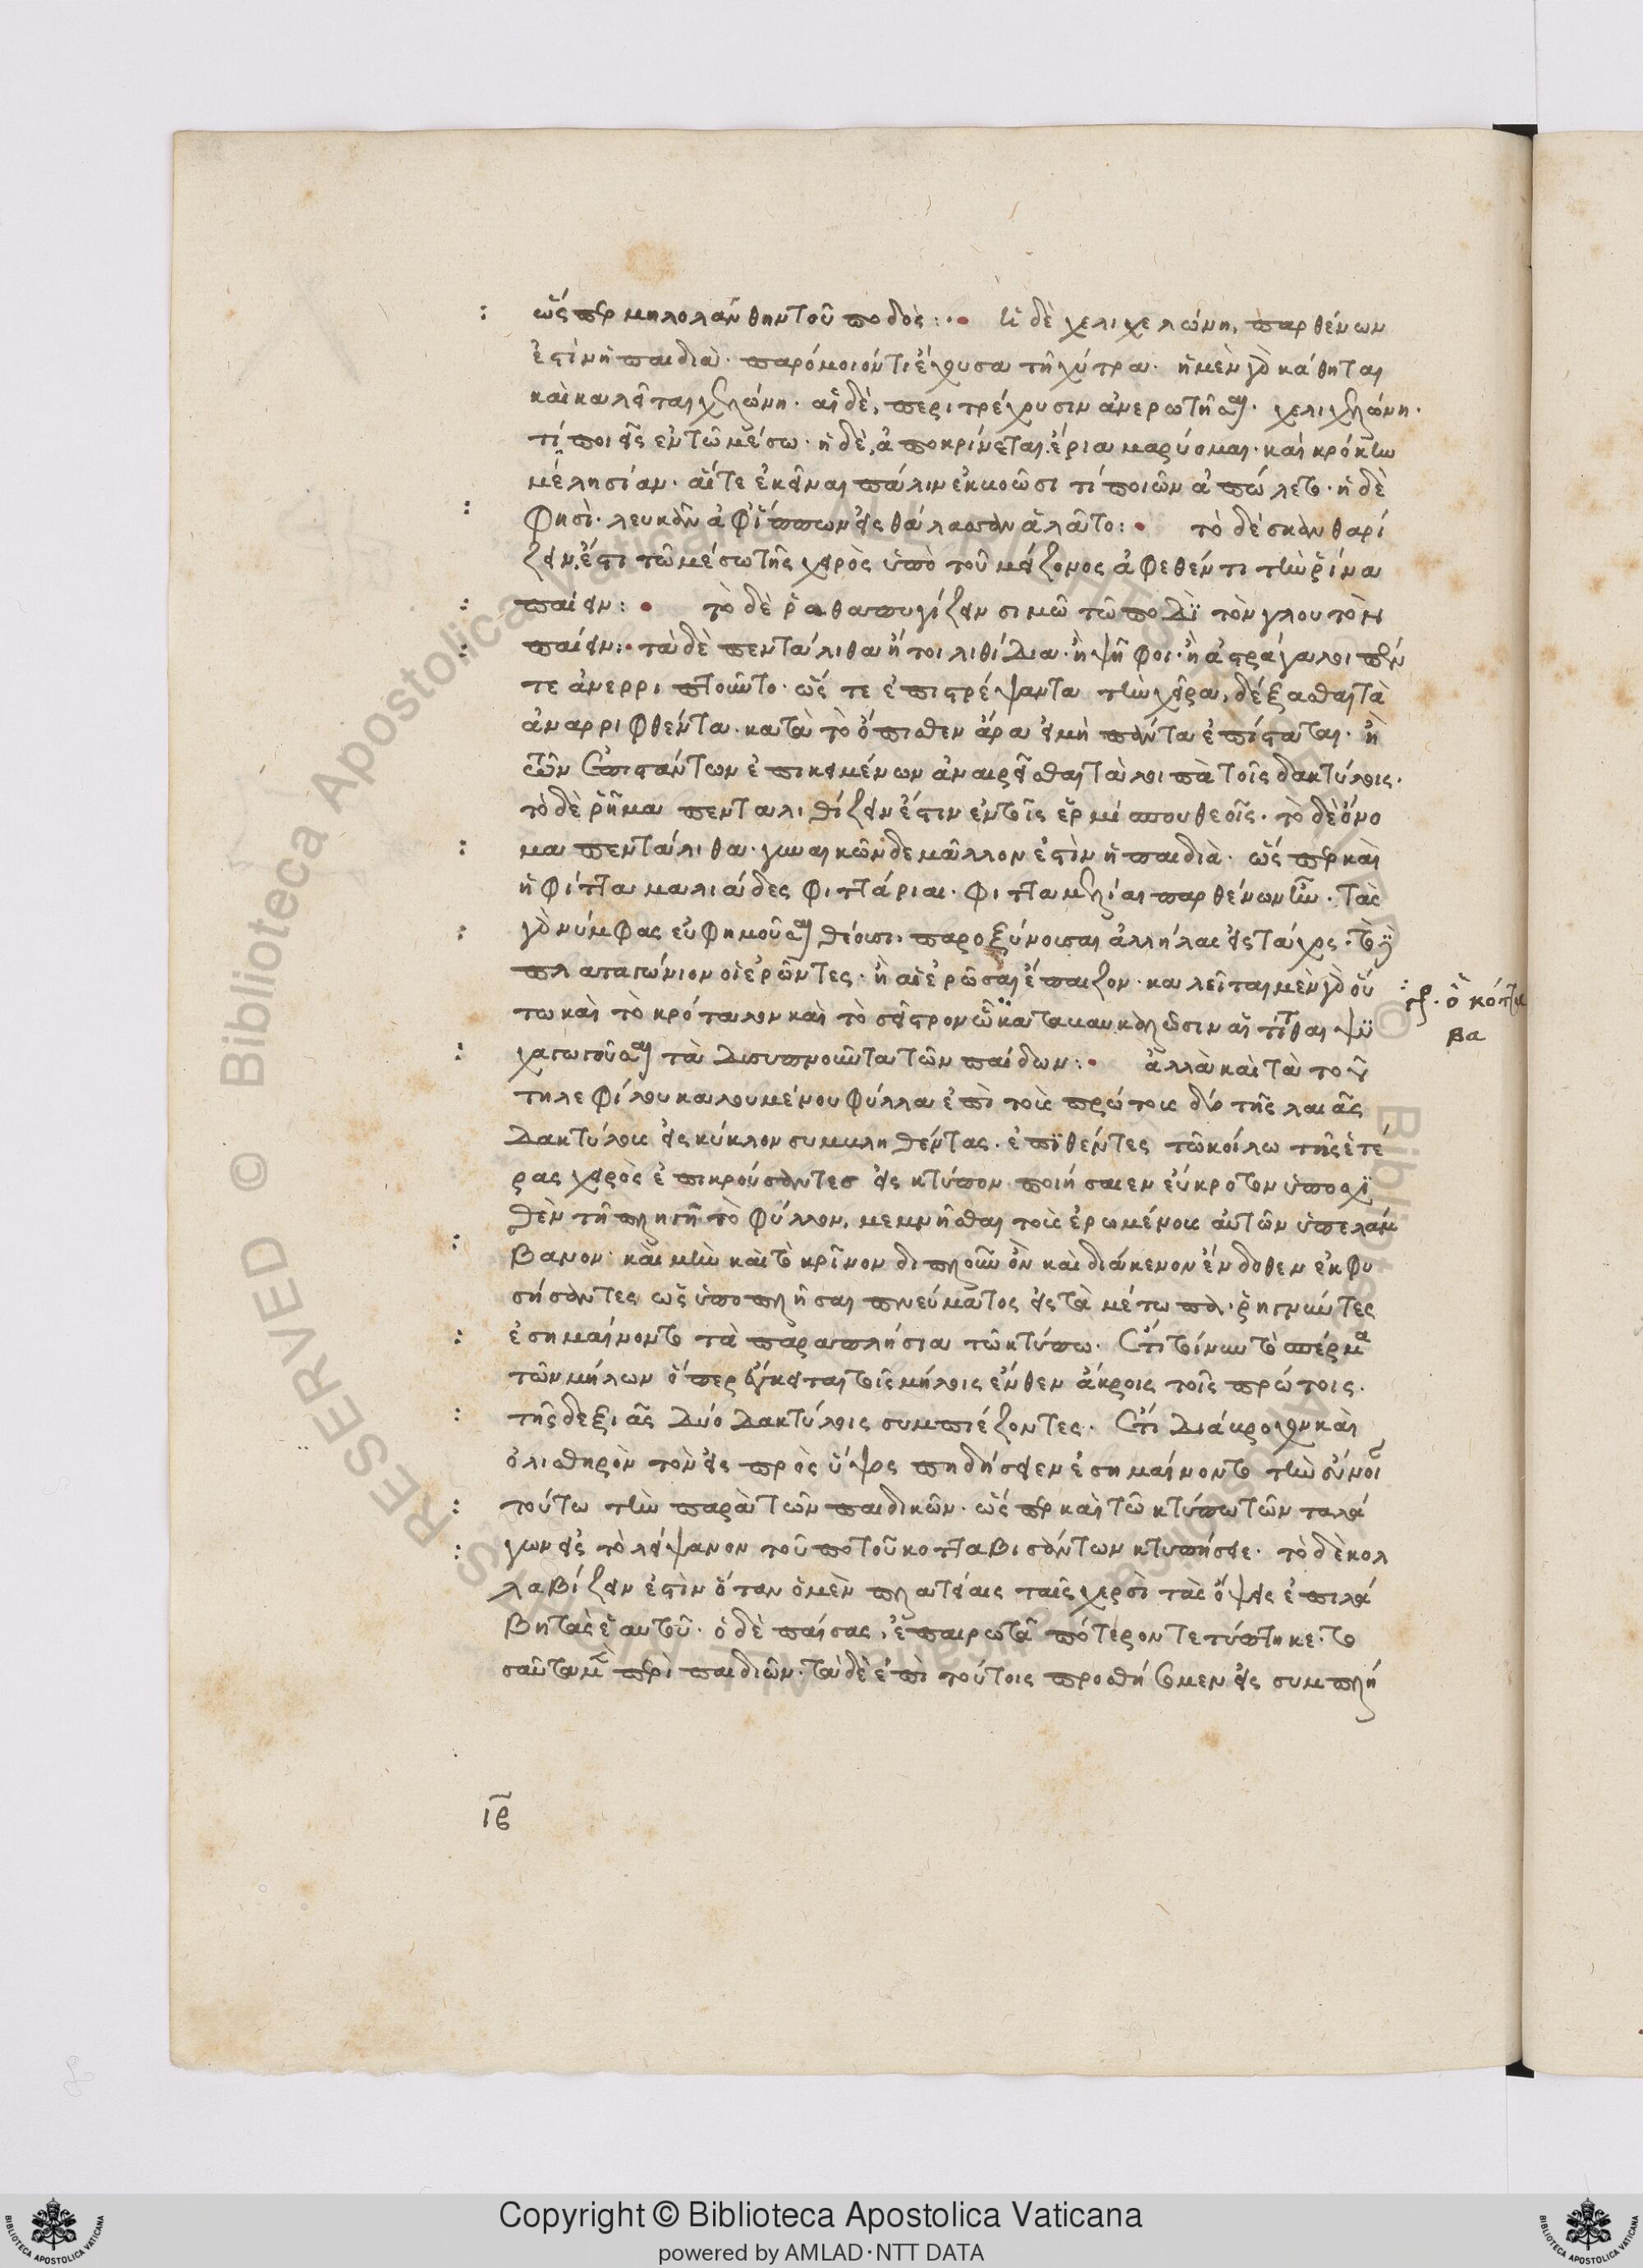 ὥσπερ μηλολάνθην τοῦ ποδός: ἡ δὲ χελιχελώνη, παρθένων
ἐστὶν ἡ παιδιὰ· παρόμοιόν τι ἔχουσα τῆ χύτρα· ἡ μὲν γὰρ κάθηται
καὶ καλεῖται χελώνη· αἱ δὲ, περιτρέχουσιν ἀνερωτῶσαι· χελιχελώνη·
τί ποιεῖς ἐν τῶ μέσω· ἡ δὲ, ἀποκρίνεται ἔρια μαρύομαι· καὶ κρόκην
μιλησίαν· εἶτε ἐκεῖναι πάλιν ἐκβοῶσι τί ποιῶν ἀπώλετο· ἡ δὲ
φησὶ· λευκᾶν ἀφ' ἵππων εἰς θάλασσαν ἅλατο: τὸ δὲ σκανθαρί
ζειν, ἔστι τῶ μέσω τῆς χειρὸς ὑπὸ τοῦ μείζονος ἀφεθέντι τὴν ῥίνα
παίειν: τὸ δὲ ῥαθαπυγίζειν σιμῶ τῶ ποδὶ τὸν γλουτὸν
παίειν: τὰ δὲ πεντάλιθα ἤτοι λιθίδια· ἢ ψῆφοι· ἢ ἀστράγαλοι πέν
τε ἀνερριπτοῦντο· ὥστε ἐπιστρέψαντα τὴν χεῖρα, δέξασθαι τὰ
ἀναρριφθέντα· κατὰ τὸ ὄπισθεν ἄρα εἰ μὴ πάντα ἐπίσταται· ἢ
τῶν ἐπιστάντων ἐπικειμένων ἀναιρεῖσθαι τὰ λοιπὰ τοῖς δακτύλοις.
τὸ δὲ ῥῆμα πενταλιθίζειν ἔστιν ἐν τοῖς ἑρμίππου θεοῖς. τὸ δὲ ὄνο
μα πεντάλιθα· γυναικῶν δε μᾶλλον ἐστὶν ἡ παιδιὰ· ὥσπερ καὶ
ἡ φίττα μαλιάδες φιττάριαι· φίττα μελίαι παρθένων ἦν· τὰς
γὰρ νύμφας εὐφημοῦσαι θέουσι· παροξύνουσαι ἀλλήλας εἰς τάχος. τὸ
πλαταγώνιον οἱ ἐρῶντες· ἢ αἱ ἐρῶσαι ἔπαιζον· καλεῖται μὲν γὰρ οὕ
τω καὶ τὸ κρόταλον καὶ τὸ σεῖστρον ὧ καταβαυκαλῶσιν αἱ τίτθαι ψυ
χαγωγοῦσαι τὰ δυσυπνοῦντα τῶν παίδων: ἀλλὰ καὶ τὰ τοῦ
τηλεφίλου καλουμένου φύλλα ἐπὶ τοὺς πρώτους δύο τῆς λαιᾶς
δακτύλους εἰς κύκλον συμβληθέντας. ἐπιθέντες τῶ κοίλω τῆς ἑτέ
ρας χειρὸς ἐπικρούσαντες εἰς κτύπον ποιήσαιεν εὔκροτον ὑποσχι
θὲν τῆ πληγῆ τὸ φύλλον, μεμνῆσθαι τοὺς ἐρωμένους αὐτῶν ὑπελάμ
βανον· καὶ μὴν καὶ τὸ κρῖνον διπλοῦν ὂν καὶ διάκενον ἔνδοθεν ἐκφυ
σήσαντες ὡς ὑποπλῆσαι πνεύματος εἰς τὰ μέτωπα ῥηγνύντες
ἐσημαίνοντο τὰ παραπλήσια τῶ κτύπω. ἔτι τοίνυν τὸ σπέρμα
τῶν μήλων ὅπερ ἔγκειται τοῖς μήλοις ἔνθεν ἄκροις τοῖς πρώτοις.
τῆς δεξιᾶς δύο δακτύλοις συμπιέζοντες. ἔτι διάβροχον καὶ
ὀλισθηρὸν τὸν εἰς πρὸς ὕψος πηδήσειεν ἐσημαίνοντο τὴν εὔνοι
τούτω τὴν παρὰ τῶν παιδικῶν· ὥσπερ καὶ τῶ κτύπω τῶν ταλά
γων εἰς τὸ λείψανον τοῦ ποτοῦ κοτταβισάντων κτυπήσειε· τὸ δὲ κολ
λαβίζειν ἐστὶν ὅταν ὁ μὲν πλατείαις ταῖς χερσὶ τὰς ὄψεις ἐπιλά
βη τὰς ἑαυτοῦ· ὁ δὲ παίσας, ἐπερωτᾶ πότερον τετύπτηκε. το
σαῦτα μὲν περὶ παιδιῶν· τὰ δὲ ἐπὶ τούτοις προσθήσομεν εἰς συμπλή
γρ. ὁ κόττα
βα